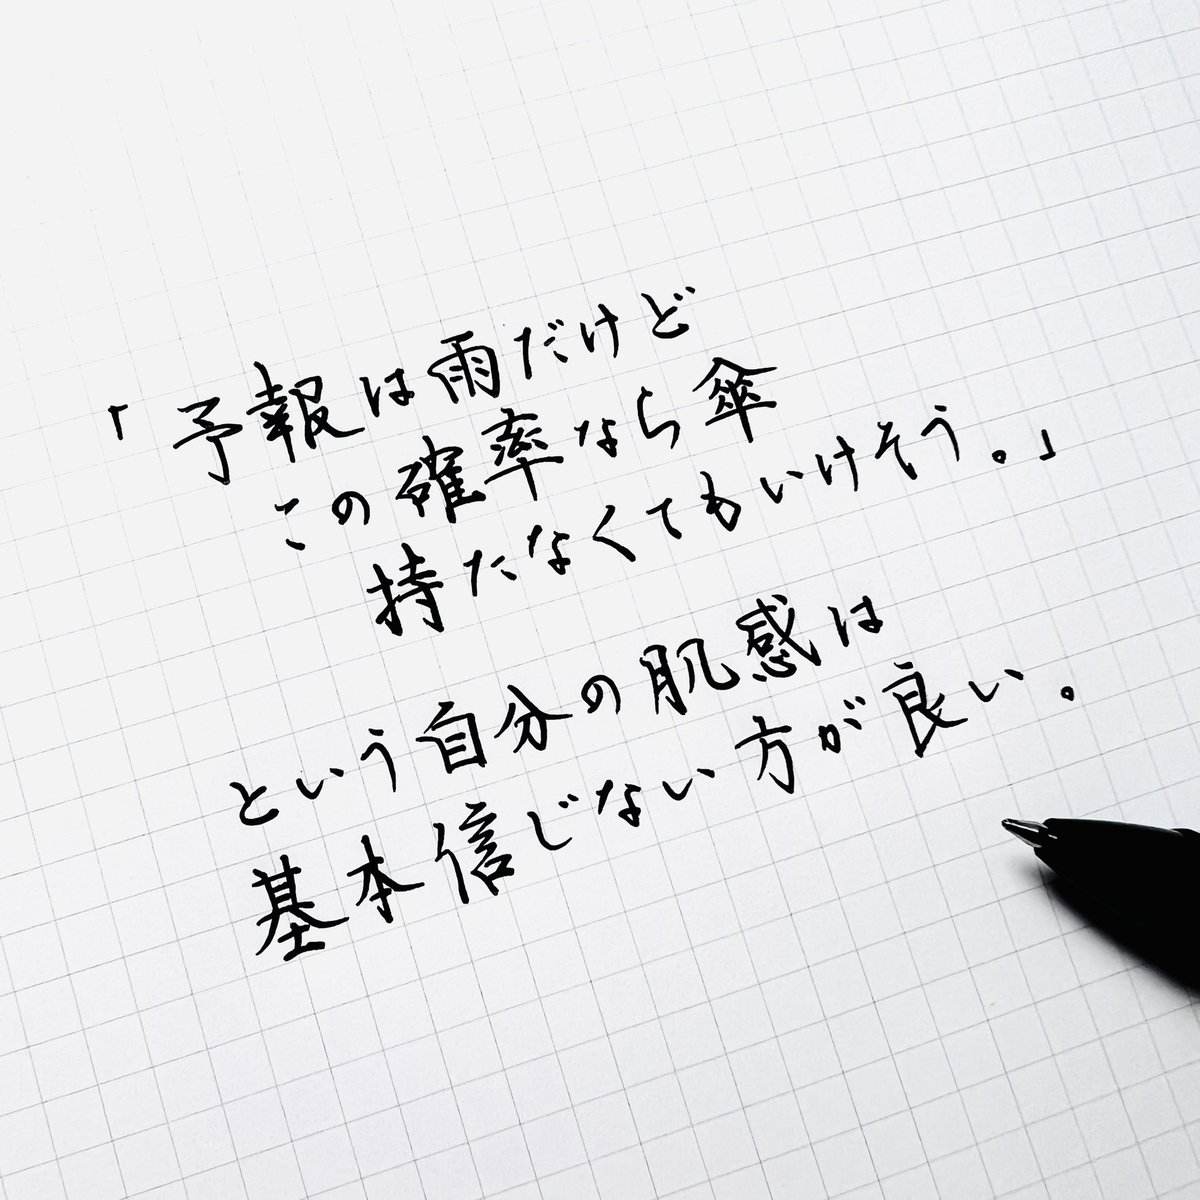 「予報は雨だけど
この確率なら傘
持たなくてもいけそう。」
という自分の肌感は
基本信じない方が良い。